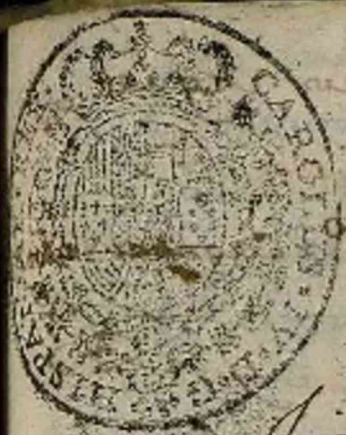 CAROLUS · IV · D · G · HISPAN